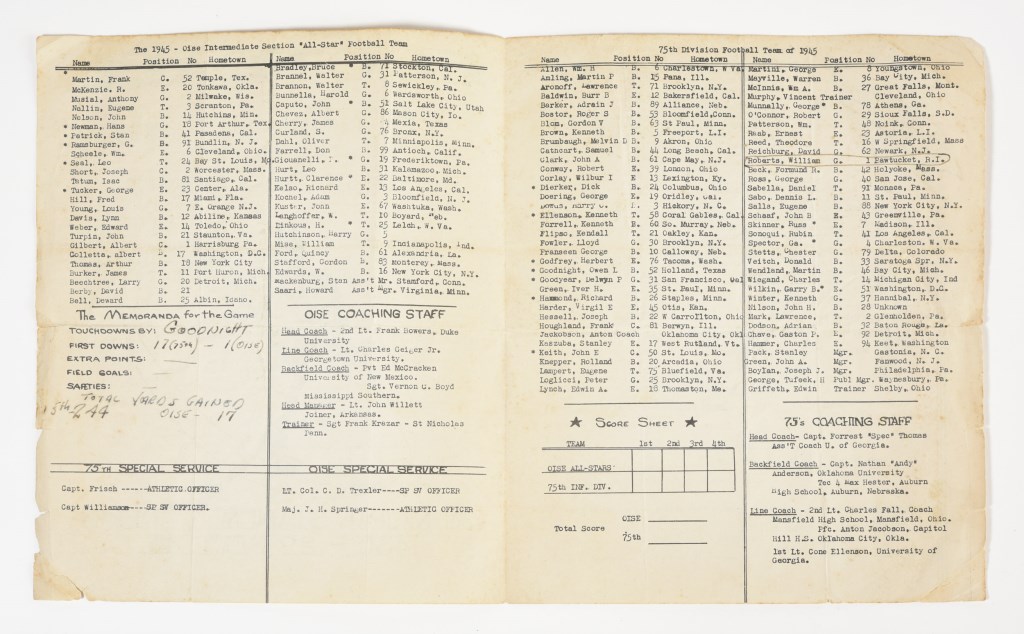 The 1945 - Oise Intermediate Section "All-Star" Football Team
Name Position No Hometown
Martin, Frank C. 52 Temple, Tex.
McKenzie, R. E. 20 Tonkawa, Okla.
Musial, Anthony G. 2 Milwake, Wis.
Nallin, Eugene T. 3 Scranton, Pa.
Nelson, John B. 14 Hutchins, Min.
* Newman, Hans G. 18 Port Arthur, Tex.
* Patrick, Stan B. 41 Pasadena, Cal.
* Ramsburger, G. B. 91 Bundlin, N. J.
Scheele, Wm. G. 6 Cleveland, Ohio.
* Seal, Leo T. 24 Bay St. Louis, Mo.
Short, Joseph C. 2 Worcester, Mass.
Tatum, Isac B. 81 Santiago, Cal.
* Tucker, George E. 23 Center, Ala.
Hill, Fred B. 17 Miami, Fla.
Young, Louis G. 7 E. Orange N.J.
Davis, Lynn B. 12 Abiline, Kansas
Weber, Edward E. 14 Toledo, Ohio
Turpin, John B. 21 Staunton, Va.
Gilbert, Albert C. 1 Harrisburg Pa.
Colletta, Albert B. 17 Washington, D.C.
Thomas, Arthur B. 18 New York City
Burker, James T. 11 Port Huron, Mich.
Beechtree, Larry G. 20 Detroit, Mich.
Berby, David B. 21
Bell, Deward B. 25 Albin, Idano.
The MEMORANDA for the Game
TOUCHDOWNS BY: GOODNIGHT
FIRST DOWNS: 17 (75th) - 1 (OISE)
EXTRA POINTS: —
FIELD GOALS: —
SAFTIES: —
TOTAL YARDS GAINED
75th 244 OISE - 17
75TH SPECIAL SERVICE
Capt. Frisch ------ATHLETIC OFFICER
Capt Williamson----SP SV OFFICER.
Name Position No Hometown
Bradley, Bruce * B. 71 Stockton, Cal.
Brannel, Walter G. 31 Patterson, N. J.
Brannon, Walter T. 8 Sewickley, Pa
Bunnells, Harold G. 6 Wardsworth, Ohio
Caputo, John * B. 51 Salt Lake City, Utah
Chevez, Albert G. 86 Mason City, Io.
Cherry, James G. 4 Mexia, Texas
Curland, S. G. 76 Bronx, N.Y.
Dahl, Oliver T. 7 Minniapolis, Minn.
Farrell, Don B. 99 Antioch, Calif.
Giouanelli, I. * G. 19 Frederiktown, Pa.
Hurt, Leo B. 31 Kalamazoo, Mich.
Hurtt, Clarence * E. 22 Baltimore, Md.
Kelso, Richard E. 13 Los Angeles, Cal.
Kochel, Adam G. 3 Bloomfield, N.J.
Kuster, John E. 67 Washtuka, Wash.
Langhoffer, W. T. 10 Boyard, Neb.
Linkous, H. * T. 25 Welch, W. Va.
Hutchinson, Harry G. 5
Mise, William T. 9 Indianapolis, Ind.
Ford, Quincy B. 61 Alexandria, La.
Stefford, Gordon B. 83 Monterey, Mass.
Edwards, W. B. 16 New York City, N.Y.
Mackenburg, Stan Ass't Mr. Stamford, Conn.
Saari, Howard Ass't Mgr. Virginia, Minn.
OISE COACHING STAFF
Head Coach - 2nd Lt. Frank Bowers, Duke
University
Line Coach - Lt. Charles Geiger Jr.
Georgetown University.
Backfield Coach - Pvt Ed McCracken
University of New Mexico.
Sgt. Vernon C. Boyd
Mississippi Southern.
Head Manager - Lt. John Willett
Joiner, Arkansas.
Trainer - Sgt Frank Krezar - St Nicholas
Penn.
OISE SPECIAL SERVICE
LT. Col. C. D. Trexler----SP SV OFFICER
Maj. J. H. Springer------ATHLETIC OFFICER
75th Division Football Team of 1945
Name Position No Hometown
Allen, Wm. H B. 6 Charleston, W Va.
Anling, Martin P B. 15 Pana, Ill.
Aronoff, Lawrence T. 71 Brooklyn, N.Y.
Baldwin, Burr B E. 12 Bakersfield, Cal.
Barker, Adrain J B. 89 Alliance, Neb.
Bostor, Roger S B. 53 Bloomfield, Conn.
Blom, Gordon V B. 63 St Paul, Minn.
Brown, Kenneth B. 5 Freeport, L.I.
Brumbaugh, Melvin D B. 9 Akron, Ohio
Cathcart, Samuel B. 44 Long Beach, Cal.
Clark, John A B. 61 Cape May, N.J.
Conway, Robert E. 39 London, Ohio
Corley, Wilbur I E. 13 Lexington, Ky.
* Dierker, Dick B. 24 Columbus, Ohio
Doering, George E. 19 Oridley, Cal.
T. 3 Hickory, N. C.
* Ellenson, Kenneth T. 58 Coral Gables, Cal.
Farrell, Kenneth B. 60 So. Murray, Neb.
Flipse, Kendall T. 21 Oakley, Kan.
Fowler, Lloyd G. 30 Brooklyn, N.Y.
Franseen George B. 10 Galloway, Neb.
* Godfrey, Herbert E. 76 Tacoma, Wash.
* Goodnight, Owen L B. 52 Holland, Texas
* Goodyear, Delwyn P G. 31 San Francisco, Cal
Green, Iver H. E. 35 St. Paul, Minn.
* Hammond, Richard B. 26 Staples, Minn.
Harder, Virgil E E. 45 Otis, Kan.
Hessell, Jacob B. 22 W Carrollton, Ohio
Houghland, Frank C. 81 Berwyn, Ill.
Jackobson, Anton Coach Oklahoma City, Okl
Kaszuba, Stanley E. 17 West Rutland, Vt.
* Keith, John E C. 50 St. Louis, Mo.
Knepper, Rolland B. 20 Arcadia, Ohio
Lampert, Eugene T. 75 Bluefield, Va.
Loglisci, Peter G. 25 Brooklyn, N.Y.
Lynch, Edwin A. E. 18 Thomaston, Me.
★ SCORE SHEET ★
TEAM 1st 2nd 3rd 4th
OISE ALL-STARS
75th INF. DIV.
OISE
Total Score
75th
Name Position No Hometown
Martini, George E. 8 Youngstown, Ohio
Mayville, Warren B. 36 Bay City, Mich.
McInnis, Wm A. B. 27 Great Falls, Mont.
Murphy, Vincent Trainer Cleveland, Ohio
Munnally, George * B. 78 Athens, Ga.
O'Connor, Robert G. 29 Sioux Falls, S.D.
Patterson, Wm. T. 48 Noink, Conn.
Raab, Ernest E. 23 Astoria, L.I.
Reed, Theodore T. 16 W Springfield, Mass
Reichburg, David G. 62 Newark, N.J.
Roberts, William G. 1 Pawtucket, R.I.
Beck, Formund R. B. 42 Holyoke, Mass.
Ross, George G. 40 San Jose, Cal.
Sabella, Daniel T. 91 Monaca, Pa.
Sabo, Dennis L. B. 11 St. Paul, Minn.
Salls, Eugene B. 88 New York City, N.Y.
Schaaf, John H E. 43 Greenville, Pa.
Skinner, Russ * E. 7 Madison, Ill.
Sonoqui, Rubin T. 41 Los Angeles, Cal.
Spector, Ga. * G. 4 Charleston, W. Va
Stetts, Chester G. 79 Delta, Colorado
Veitch, Donald B. 33 Saratoga Spr. N.Y.
Wendland, Martin B. 46 Bay City, Mich.
Wiegand, Charles T. 14 Michigan City, Ind
Wilkin, Garry B. * E. 51 Washington, D.C.
Winter, Kenneth G. 37 Hannibal, N.Y.
Nilson, John H. B. 28 Unknown
Mark, Lawrence, T. 2 Glemolden, Pa.
Dodson, Adrian B. 32 Baton Rouge, La.
Chave, Gaston P. L. 92 Detroit, Mich.
Hammer, Charles E. 94 Keet, Washington
Pack, Stanley Mgr. Gastonia, N. C.
Green, John A. Mgr. Fanwood, N. J.
Boylan, Joseph J. Mgr. Philadelphia, Pa.
George, Tufeek, H Publ Mgr. Waynesbury, Pa.
Griffeth, Edwin Trainer Shelby, Ohio
75's COACHING STAFF
Head Coach- Capt. Forrest "Spec" Thomas
Ass'T Coach U. of Georgia.
Backfield Coach - Capt. Nathan "Andy"
Anderson, Oklahoma University
Tec 4 Max Hester, Auburn
High School, Auburn, Nebraska.
Line Coach - 2nd Lt. Charles Fall, Coach
Mansfield High School, Mansfield, Ohio.
Pfc. Anton Jacobson, Capitol
Hill H.S. Oklahoma City, Okla.
1st Lt. Cone Ellenson, University of
Georgia.